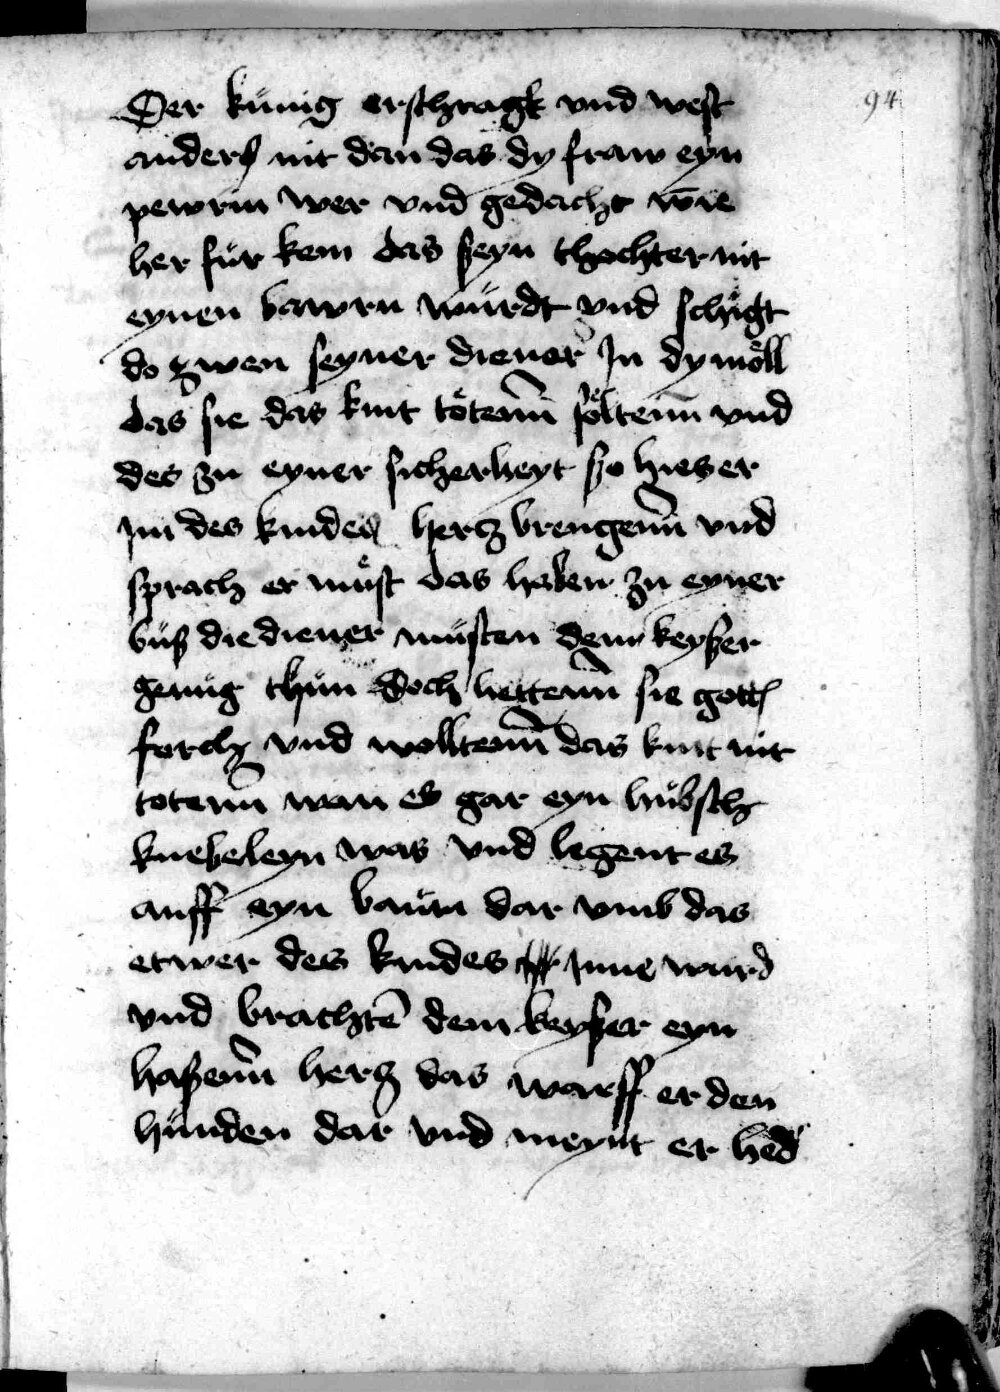 94
Der künig erschragk vnd west
anders nit dan das dy fraw eyn
pewrin wer vnd gedacht wie
her für kem das seyn thochter nit
eynen bawrn würdt vnd schigt
do zwen seyner diener In dy möll
das sie das kint tötenn̄ söltenn̄ vnd
des zu eyner sicherheyt so hies er
Im des kindes hertz brengenn̄ vnd
sprach er müst das haben zu eyner
büß die diener müsten dem keyßer
genüg thün doch hettenn̄ sie gotts
forch vnd wolltenn̄ das kint nit
totenn̄ wan es gar eyn hübsch
knebeleyn was vnd legent es
auff eyn baüm dar vmb das
etwer des kindes Inne wurd
vnd brachtē dem keyßer eyn
haßenn̄ hertz das warff er den
hünden dar vnd meynt er hed